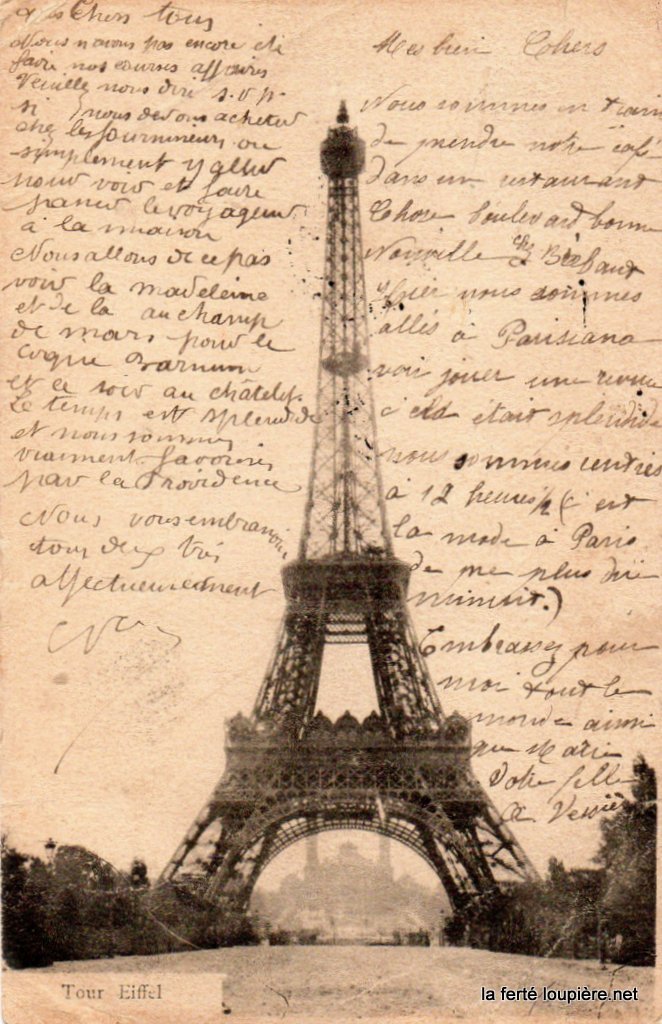 Chers tous
Nous n'avons pas encore été
faire nos courses affaires
Veuillez nous dire s.v.p.
si nous devons acheter
chez les fournisseurs ou
simplement y aller
pour voir et faire
passer le voyageur
à la maison
Nous allons de ce pas
voir la madeleine
et de la au champ
de mars pour le
Cirque Barnum
et ce soir au châtelet.
Le temps est splendide
et nous sommes
vraiment favorisés
par la Providence
Nous vous embrassons
tous deux très
affectueusement
Mes bien Chers
Nous sommes en train
de prendre notre café
dans un restaurant
Chose boulevard bonne
Nouvelle
Hier nous sommes
allés à Parisiana
voir jouer une revue
c'était splendide
nous sommes rentrés
à 12 heures ½ (c'est
la mode à Paris
de ne plus dire
minuit.)
Embrassez pour
moi tout le
monde ainsi
que Marie
Votre fille
Tour Eiffel
la ferté loupière.net